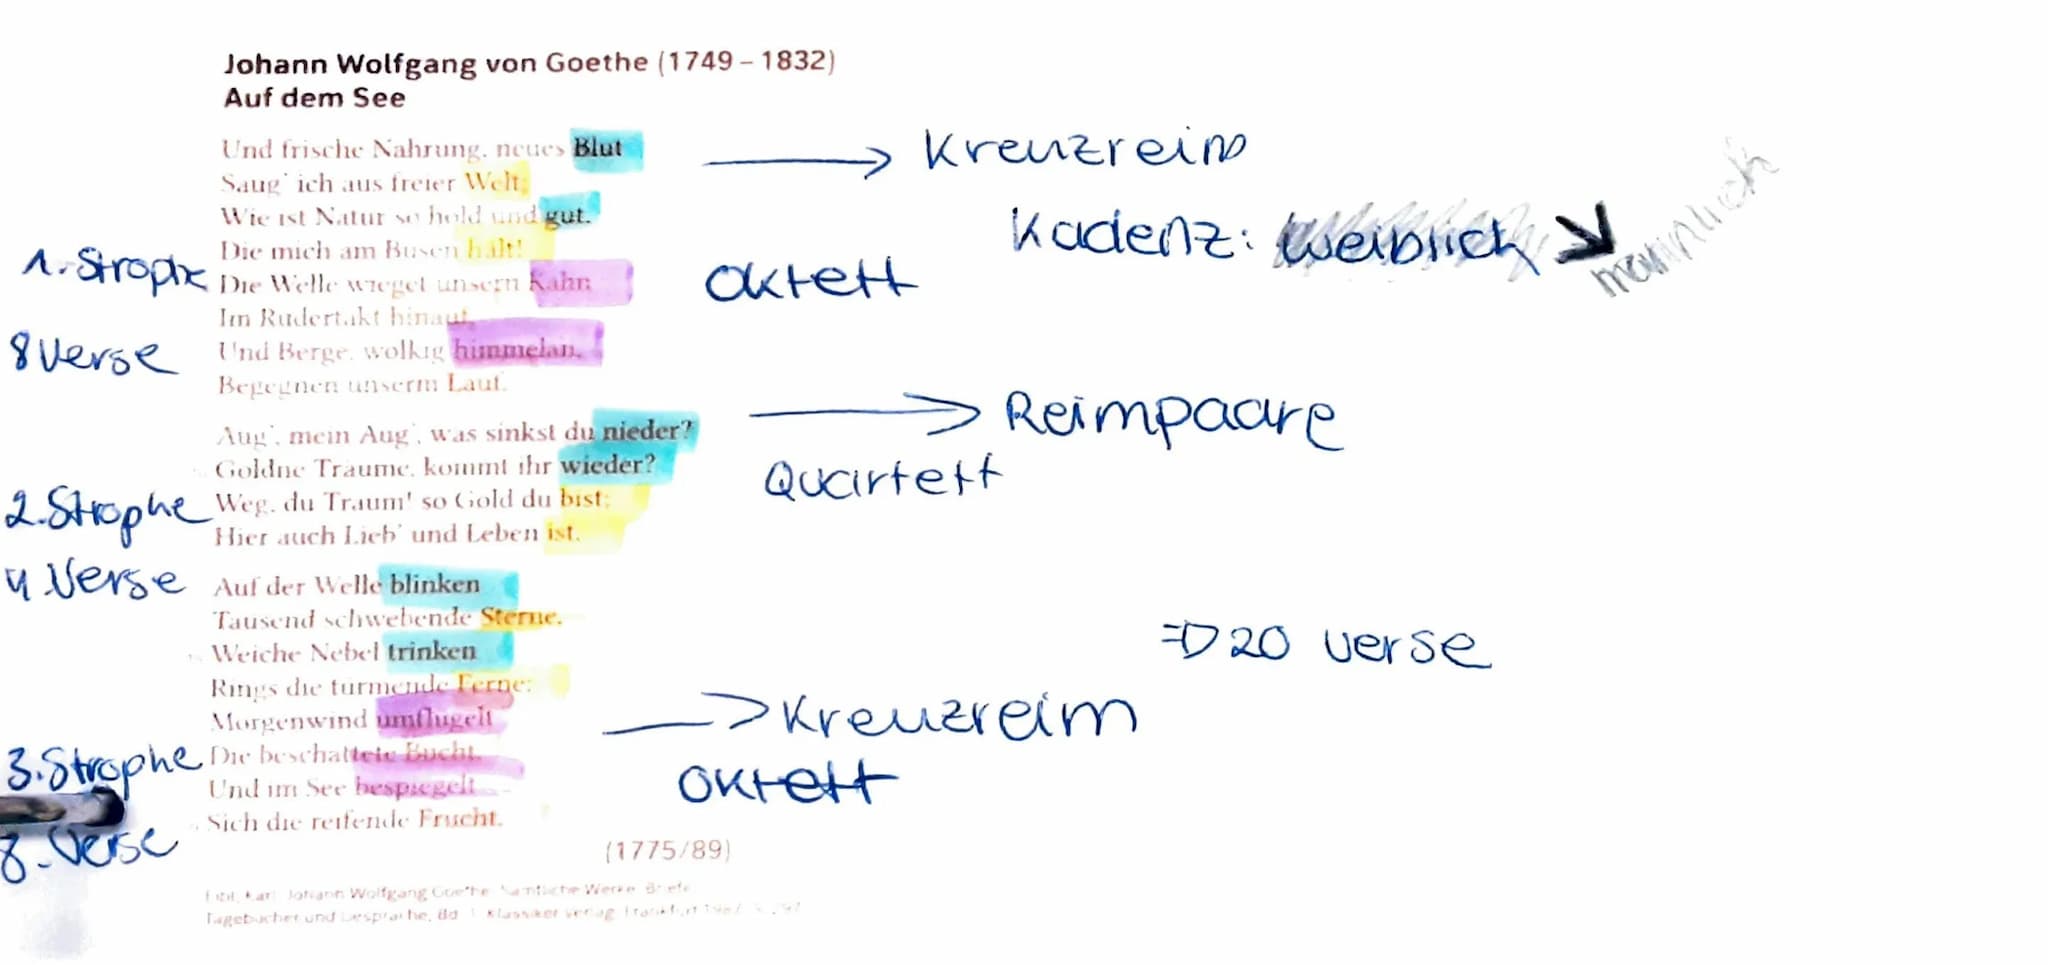 Johann Wolfgang von Goethe (1749 – 1832)
Auf dem See
Und frische Nahrung, neues Blut
Saug' ich aus freier Welt;
Wie ist Natur so hold und gut,
Die mich am Busen hält!
Die Welle wieget unsern Kahn
Im Rudertakt hinauf,
Und Berge, wolkig himmelan,
Begegnen unserm Lauf.
1. Strophe
8 Verse
Kreuzreim
Kadenz: weiblich
männlich
Oktett
Aug', mein Aug', was sinkst du nieder?
Goldne Träume, kommt ihr wieder?
Weg, du Traum! so Gold du bist;
Hier auch Lieb' und Leben ist.
2. Strophe
4 Verse
Reimpaare
Quartett
Auf der Welle blinken
Tausend schwebende Sterne,
Weiche Nebel trinken
Rings die türmende Ferne;
Morgenwind umflügelt
Die beschattete Bucht,
Und im See bespiegelt
Sich die reifende Frucht.
3. Strophe
8. Verse
=> 20 Verse
Kreuzreim
Oktett
(1775/89)
Karl Johann Wolfgang Goethe Sämtliche Werke Briefe
Tagebücher und Gespräche, Bd. Klassiker Verlag, Frankfurt